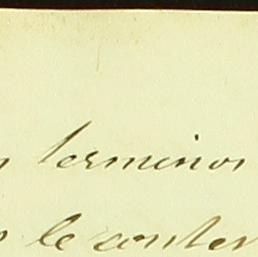 terminos
le contes